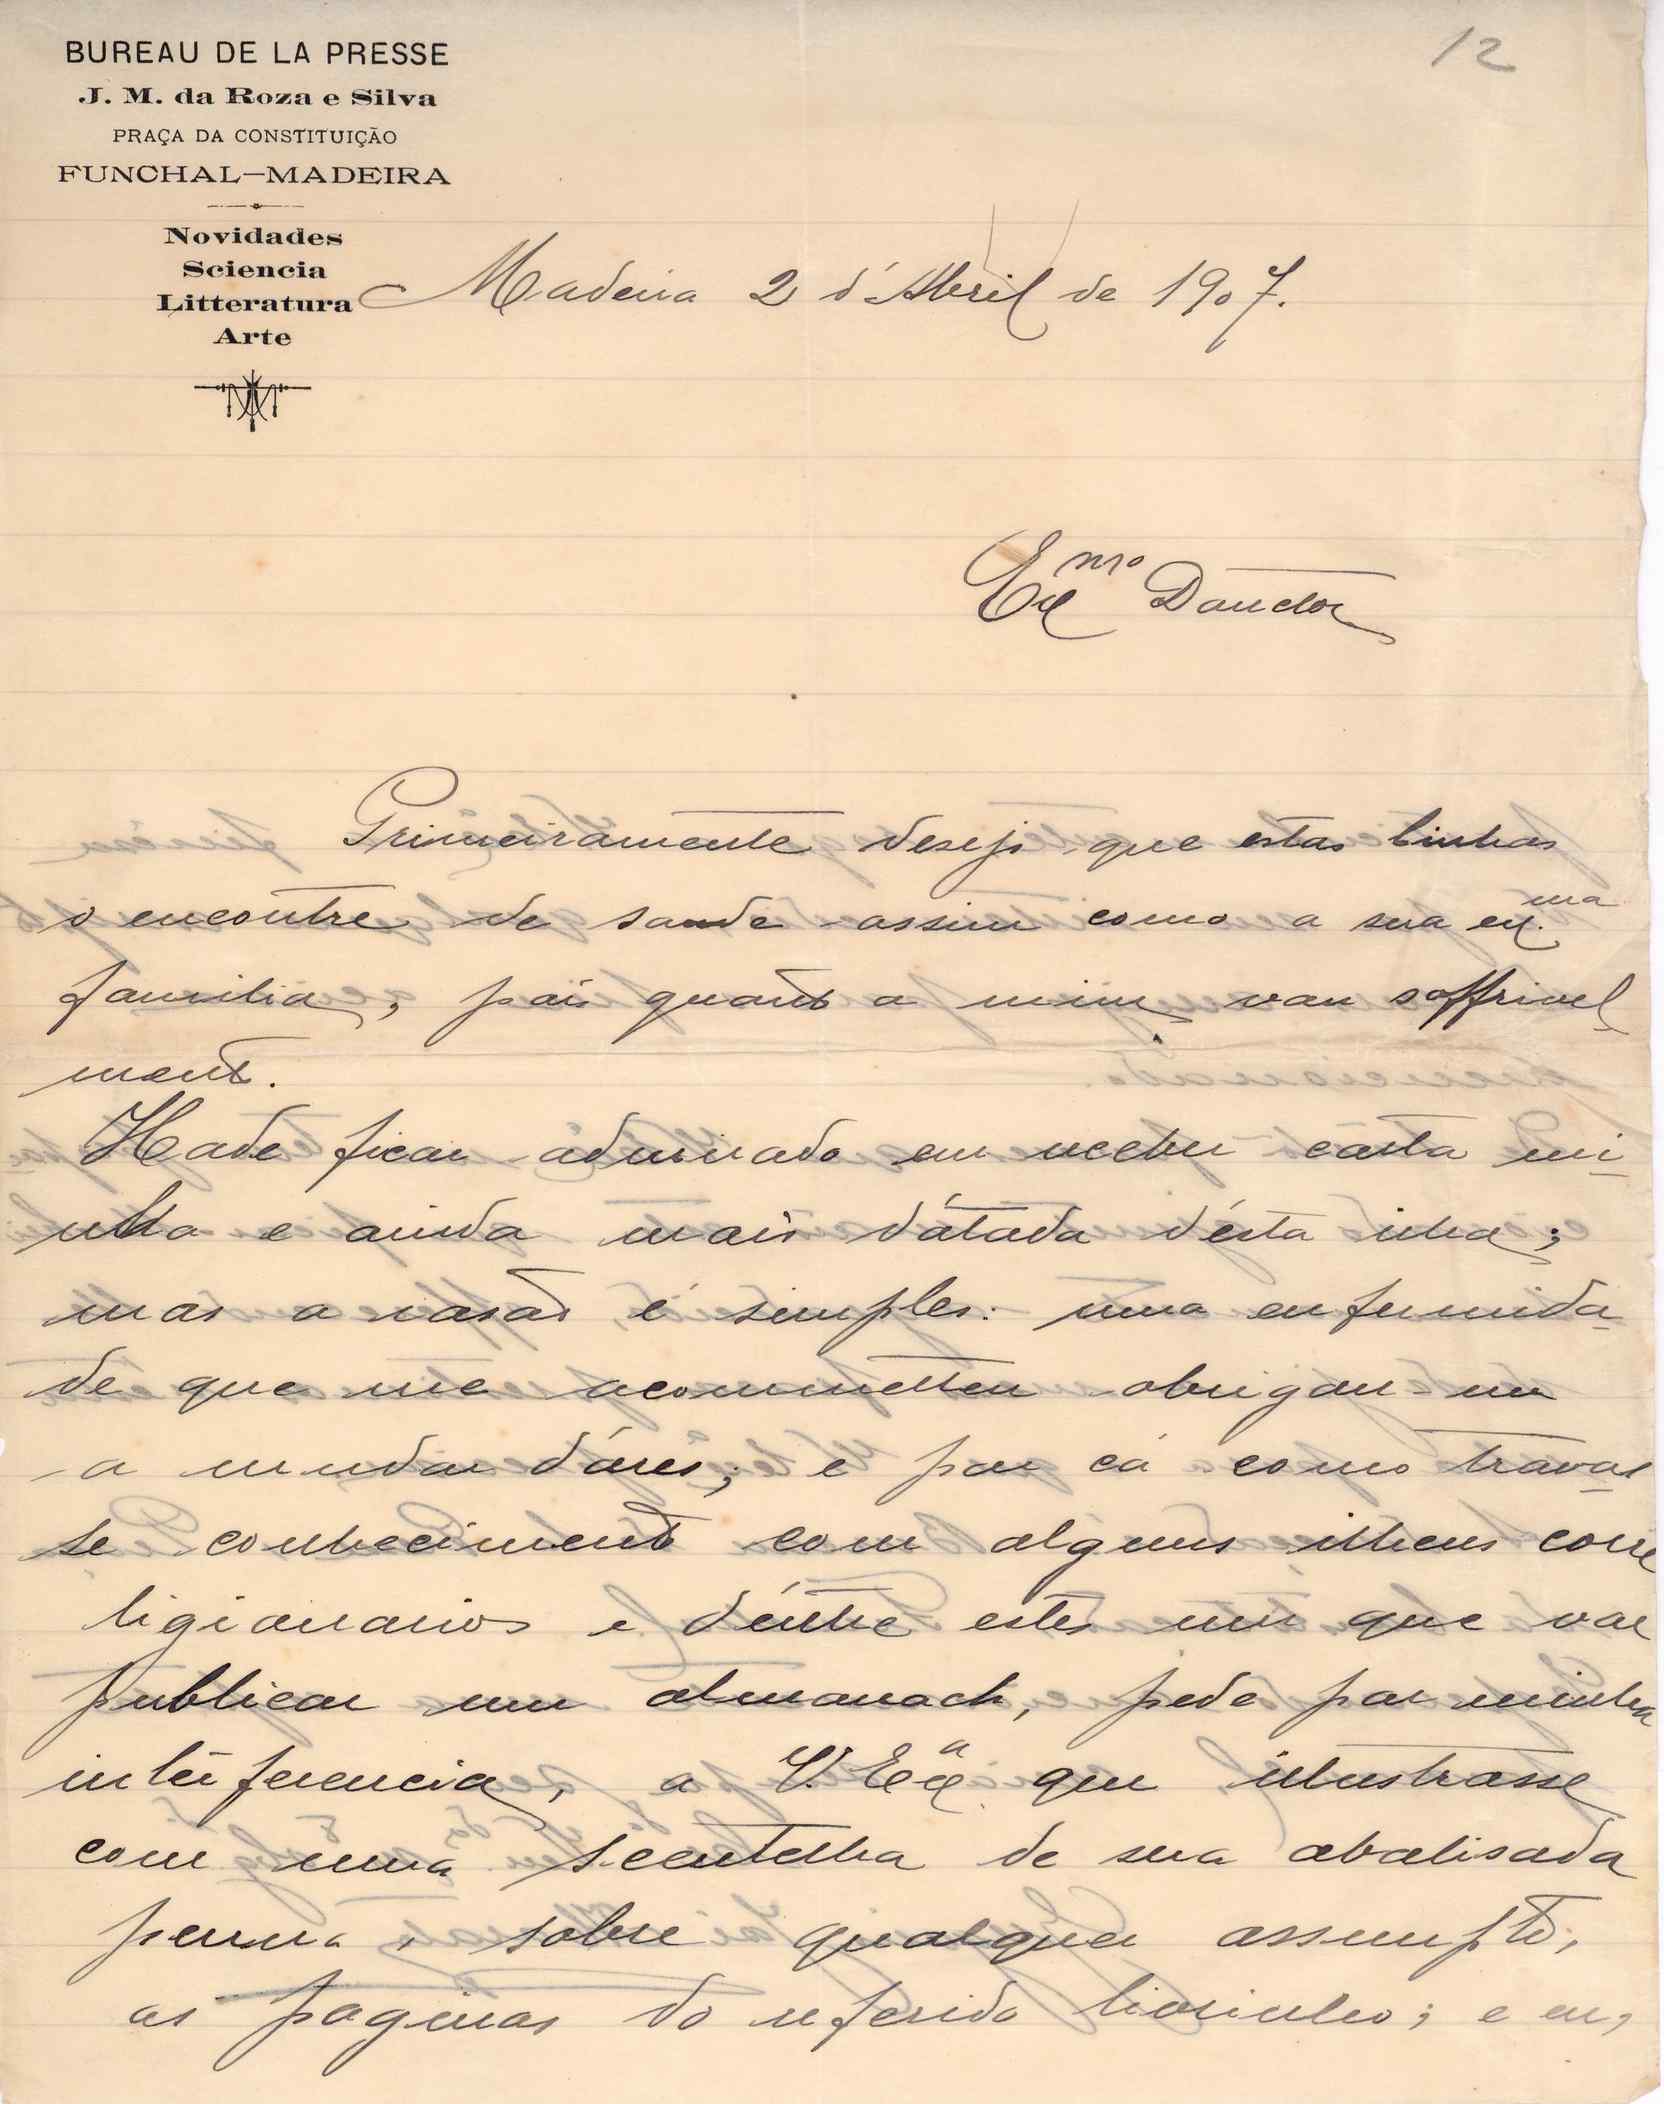 12
BUREAU DE LA PRESSE
J. M. da Roza e Silva
PRAÇA DA CONSTITUIÇÃO
FUNCHAL—MADEIRA
Novidades
Sciencia
Litteratura
Arte
Madeira 2 d'Abril de 1907.
Exmo Douctor
Primeiramente desejo que estas linhas
o encontre de saude assim como a sua exma
familia, pois quanto a mim vou soffrivel
mente.
Hade ficar admirado em receber carta mi-
nha e ainda mais dátada d'ésta ilha;
mas a rasão é simples: uma enfermida-
de que me acommetteu obrigou-me
a mudar d'áres; e por cá como travas-
se conhecimento com alguns ilheus corre
ligionarios e d'éntre estes um que vae
publicar um almanach, pede por minha
interferencia, a V. Exa que illustrasse
com uma scentelha de sua abalisada
penna, sobre qualquer assumpto,
as paginas do referido livrinho; e eu,